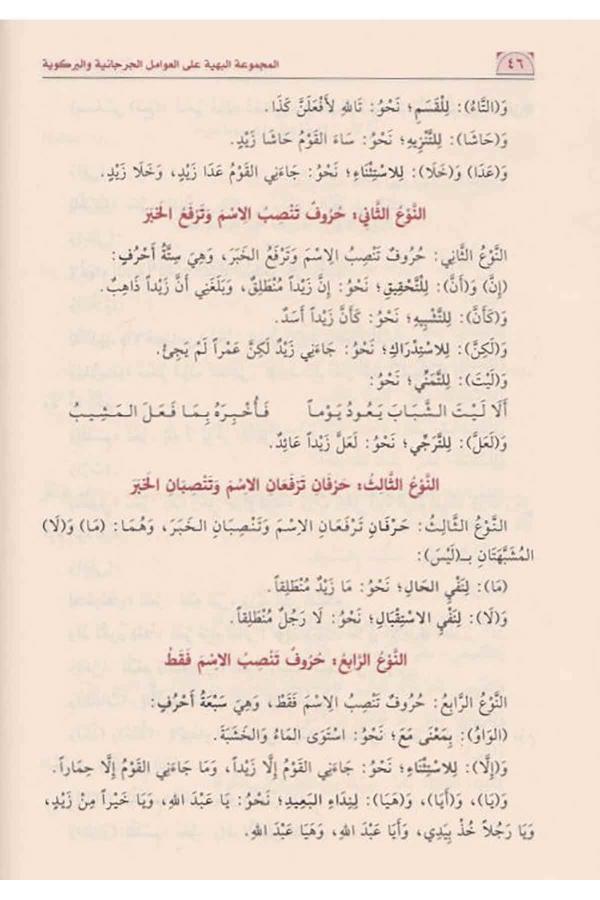 ٤٦
المجموعة البهية على العوامل الجرجانية والبركوية
وَ(التَّاءُ): لِلْقَسَمِ؛ نَحْوُ: تَاللهِ لأَفْعَلَنَّ كَذَا.
وَ(حَاشَا): لِلتَّنْزِيهِ؛ نَحْوُ: سَاءَ القَوْمُ حَاشَا زَيْدٍ.
وَ(عَدَا) وَ(خَلَا): لِلاسْتِثْنَاءِ؛ نَحْوُ: جَاءَنِي القَوْمُ عَدَا زَيْدٍ، وَخَلَا زَيْدٍ.
النَّوْعُ الثَّانِي: حُرُوفٌ تَنْصِبُ الِاسْمَ وَتَرْفَعُ الخَبَرَ
النَّوْعُ الثَّانِي: حُرُوفٌ تَنْصِبُ الِاسْمَ وَتَرْفَعُ الخَبَرَ، وَهِيَ سِتَّةُ أَحْرُفٍ:
(إِنَّ) وَ(أَنَّ): لِلتَّحْقِيقِ؛ نَحْوُ: إِنَّ زَيْداً مُنْطَلِقٌ، وَبَلَغَنِي أَنَّ زَيْداً ذَاهِبٌ.
وَ(كَأَنَّ): لِلتَّشْبِيهِ؛ نَحْوُ: كَأَنَّ زَيْداً أَسَدٌ.
وَ(لَكِنَّ): لِلاسْتِدْرَاكِ؛ نَحْوُ: جَاءَنِي زَيْدٌ لَكِنَّ عَمْراً لَمْ يَجِئْ.
وَ(لَيْتَ): لِلتَّمَنِّي؛ نَحْوُ:
أَلَا لَيْتَ الشَّبَابَ يَعُودُ يَوْماً فَأُخْبِرَهُ بِمَا فَعَلَ المَشِيبُ
وَ(لَعَلَّ): لِلتَّرَجِّي؛ نَحْوُ: لَعَلَّ زَيْداً عَائِدٌ.
النَّوْعُ الثَّالِثُ: حَرْفَانِ تَرْفَعَانِ الِاسْمَ وَتَنْصِبَانِ الخَبَرَ
النَّوْعُ الثَّالِثُ: حَرْفَانِ تَرْفَعَانِ الِاسْمَ وَتَنْصِبَانِ الخَبَرَ، وَهُمَا: (مَا) وَ(لَا)
المُشَبَّهَتَانِ بِـ(لَيْسَ):
(مَا): لِنَفْيِ الحَالِ؛ نَحْوُ: مَا زَيْدٌ مُنْطَلِقاً.
وَ(لَا): لِنَفْيِ الاسْتِقْبَالِ؛ نَحْوُ: لَا رَجُلٌ مُنْطَلِقاً.
النَّوْعُ الرَّابِعُ: حُرُوفٌ تَنْصِبُ الِاسْمَ فَقَطْ
النَّوْعُ الرَّابِعُ: حُرُوفٌ تَنْصِبُ الِاسْمَ فَقَطْ، وَهِيَ سَبْعَةُ أَحْرُفٍ:
(الوَاوُ): بِمَعْنَى مَعَ؛ نَحْوُ: اسْتَوَى المَاءُ وَالخَشَبَةَ.
وَ(إِلَّا): لِلاسْتِثْنَاءِ؛ نَحْوُ: جَاءَنِي القَوْمُ إِلَّا زَيْداً، وَمَا جَاءَنِي القَوْمُ إِلَّا حِمَاراً.
وَ(يَا)، وَ(أَيَا)، وَ(هَيَا): لِنِدَاءِ البَعِيدِ؛ نَحْوُ: يَا عَبْدَ اللهِ، وَيَا خَيْراً مِنْ زَيْدٍ،
وَيَا رَجُلاً خُذْ بِيَدِي، وَأَيَا عَبْدَ اللهِ، وَهَيَا عَبْدَ اللهِ.